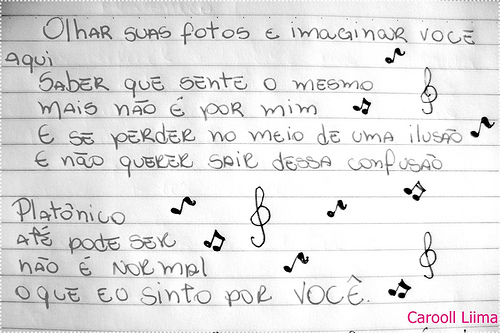 OLHAR SUAS FOTOS E IMAGINAR VOCE
AQUI
SABER QUE SENTE O MESMO
MAIS NÃO É POR MIM
E SE PERDER NO MEIO DE UMA ILUSÃO
E NÃO QUERER SAIR DESSA CONFUSÃO
PLATÔNICO
ATÉ PODE SER
NÃO É NORMAL
O QUE EU SINTO POR VOCÊ.
Carooll Liima